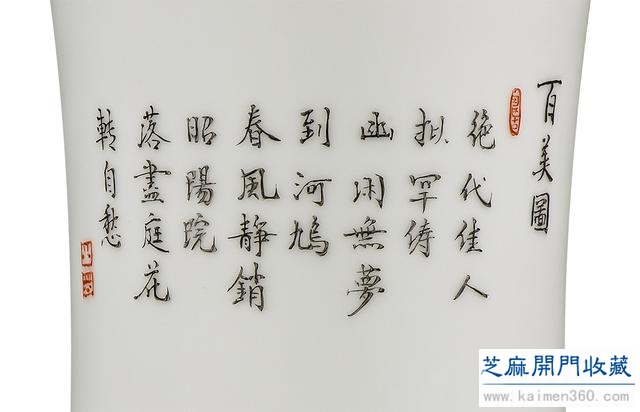 百美圖
絶代佳人
拟罕俦
幽閑無夢
到河鳩
春風静銷
昭陽院
落盡庭花
轉自愁
芝麻開門收藏
www.kaimen360.com